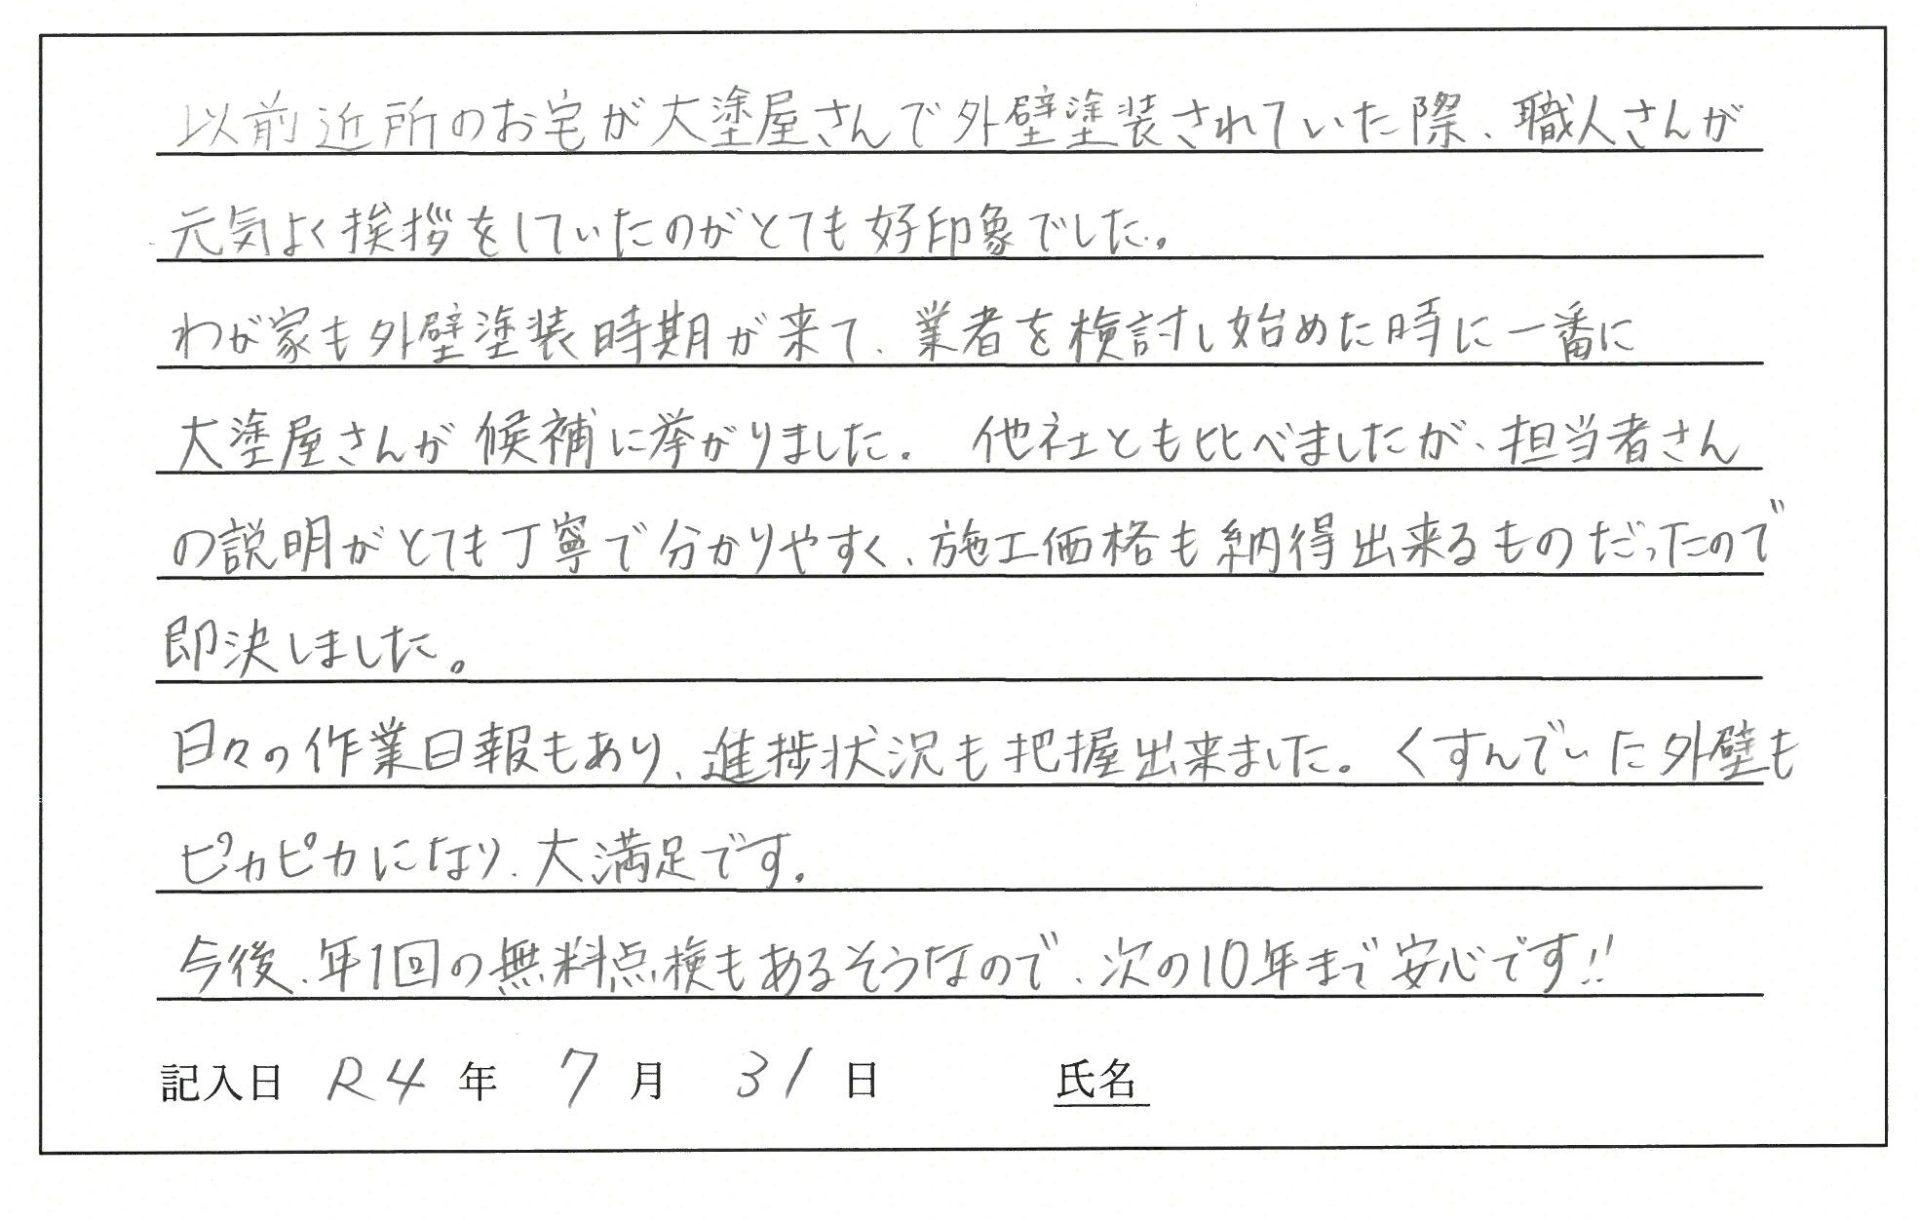 以前近所のお宅が大塗屋さんで外壁塗装されていた際、職人さんが
元気よく挨拶をしていたのがとても好印象でした。
わが家も外壁塗装時期が来て、業者を検討し始めた時に一番に
大塗屋さんが候補に挙がりました。 他社とも比べましたが、担当者さん
の説明がとても丁寧で分かりやすく、施工価格も納得出来るものだったので
即決しました。
日々の作業日報もあり、進捗状況も把握出来ました。くすんでいた外壁も
ピカピカになり、大満足です。
今後、年1回の無料点検もあるそうなので、次の10年まで安心です!!
記入日 R4 年 7 月 31 日 氏名